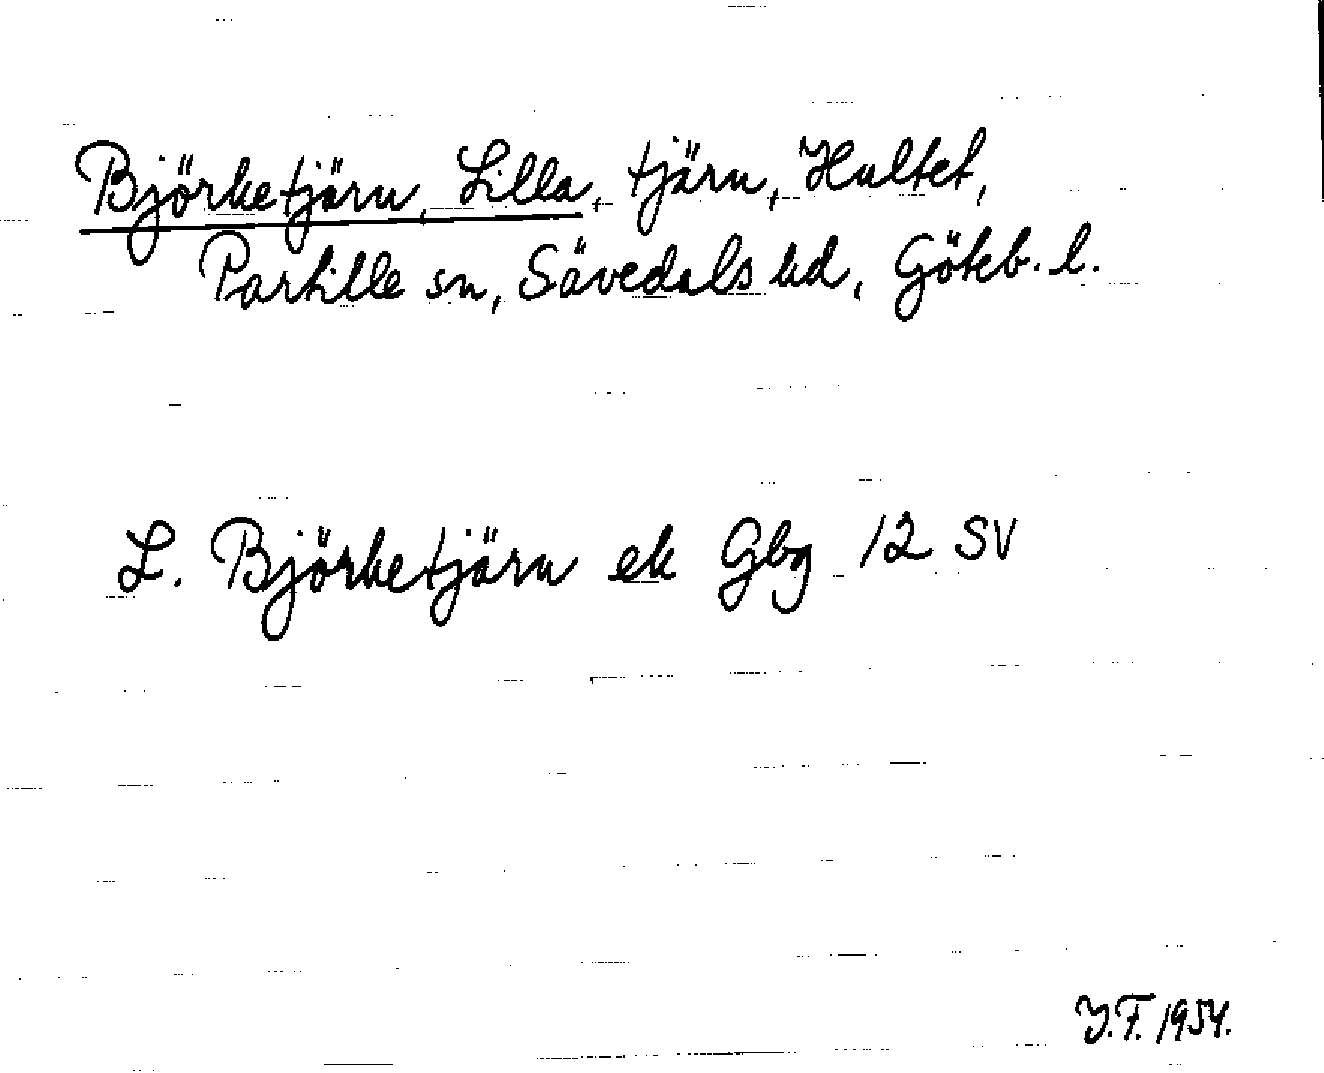 Björketjärn, Lilla, tjärn, Hultet,
Partille sn, Sävedals hd, Göteb. l.
L. Björketjärn ek Gbg 12 SV
Y.F. 1954.